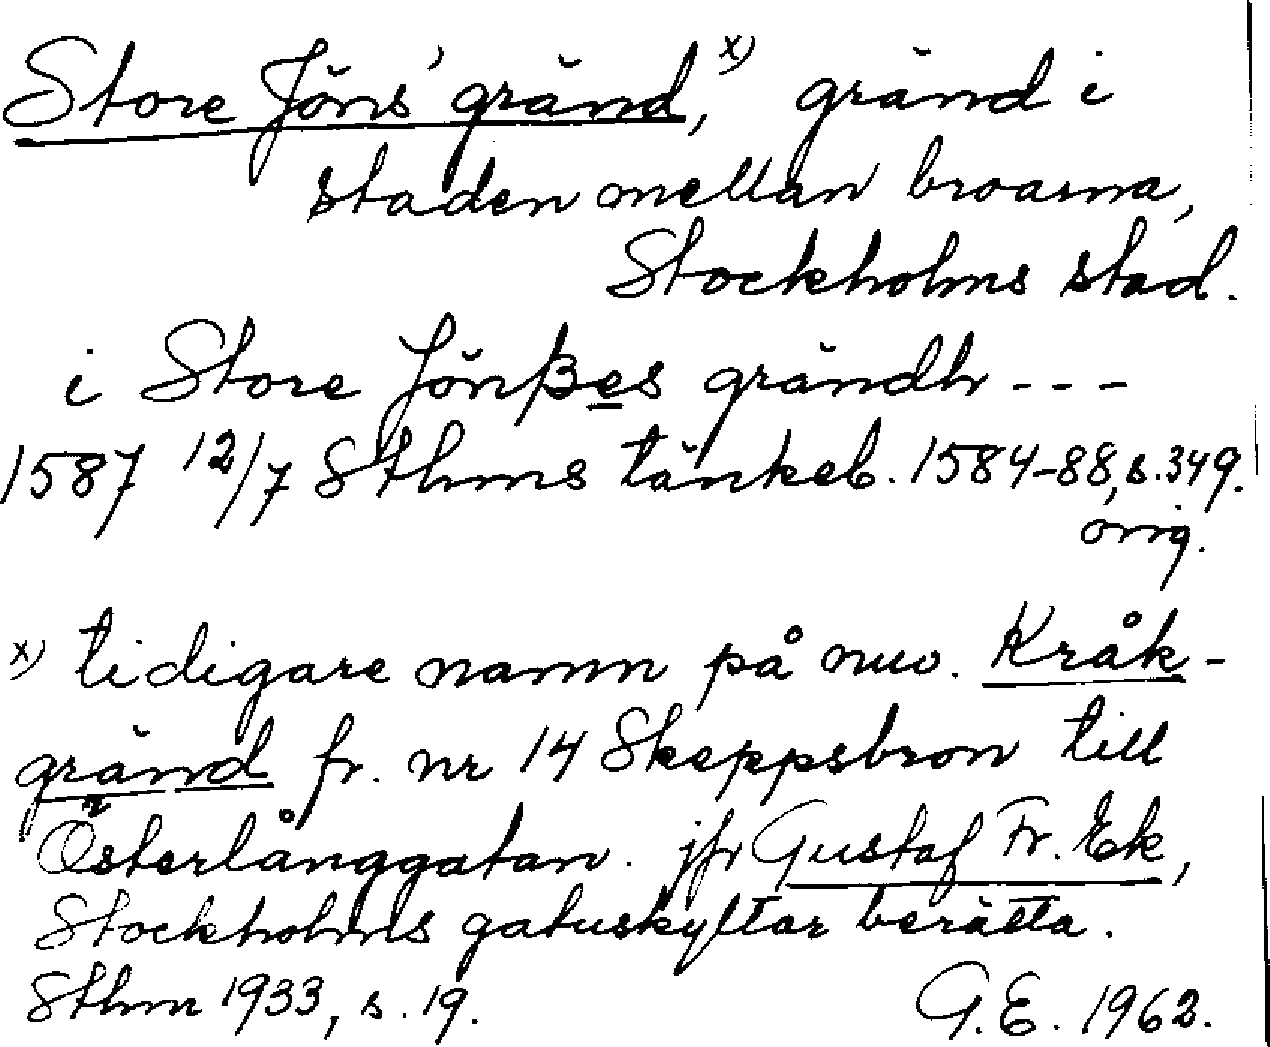 Store Jöns' gränd,x) gränd i
staden mellan broarna,
Stockholms stad.
i Store Jönßes grändh - - -
1587 12/7 Sthms tänkeb. 1584-88, s. 349.
orig.
x) tidigare namn på nuv. Kråk-
gränd fr. nr 14 Skeppsbron till
Österlånggatan. jfr Gustaf Fr. Ek,
Stockholms gatuskyltar berätta.
Sthm 1933, s. 19. G.E. 1962.